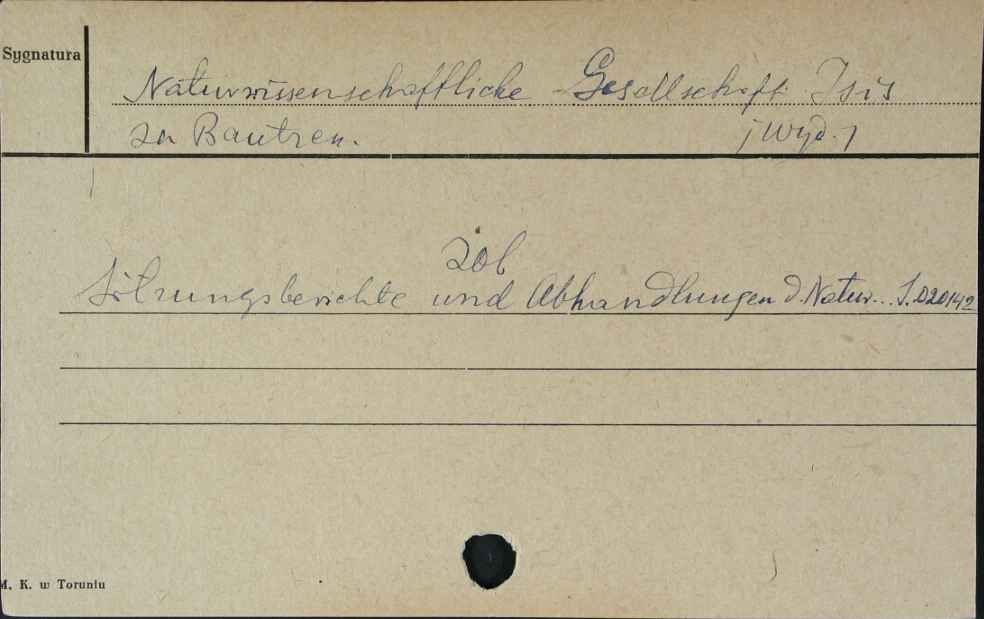 Sygnatura
Naturwissenschaftliche Gesellschaft Isis
zu Bautzen. /Wyd./
zob
Sitzungsberichte und Abhandlungen d. Natur... S.D20142
M. K. w Toruniu